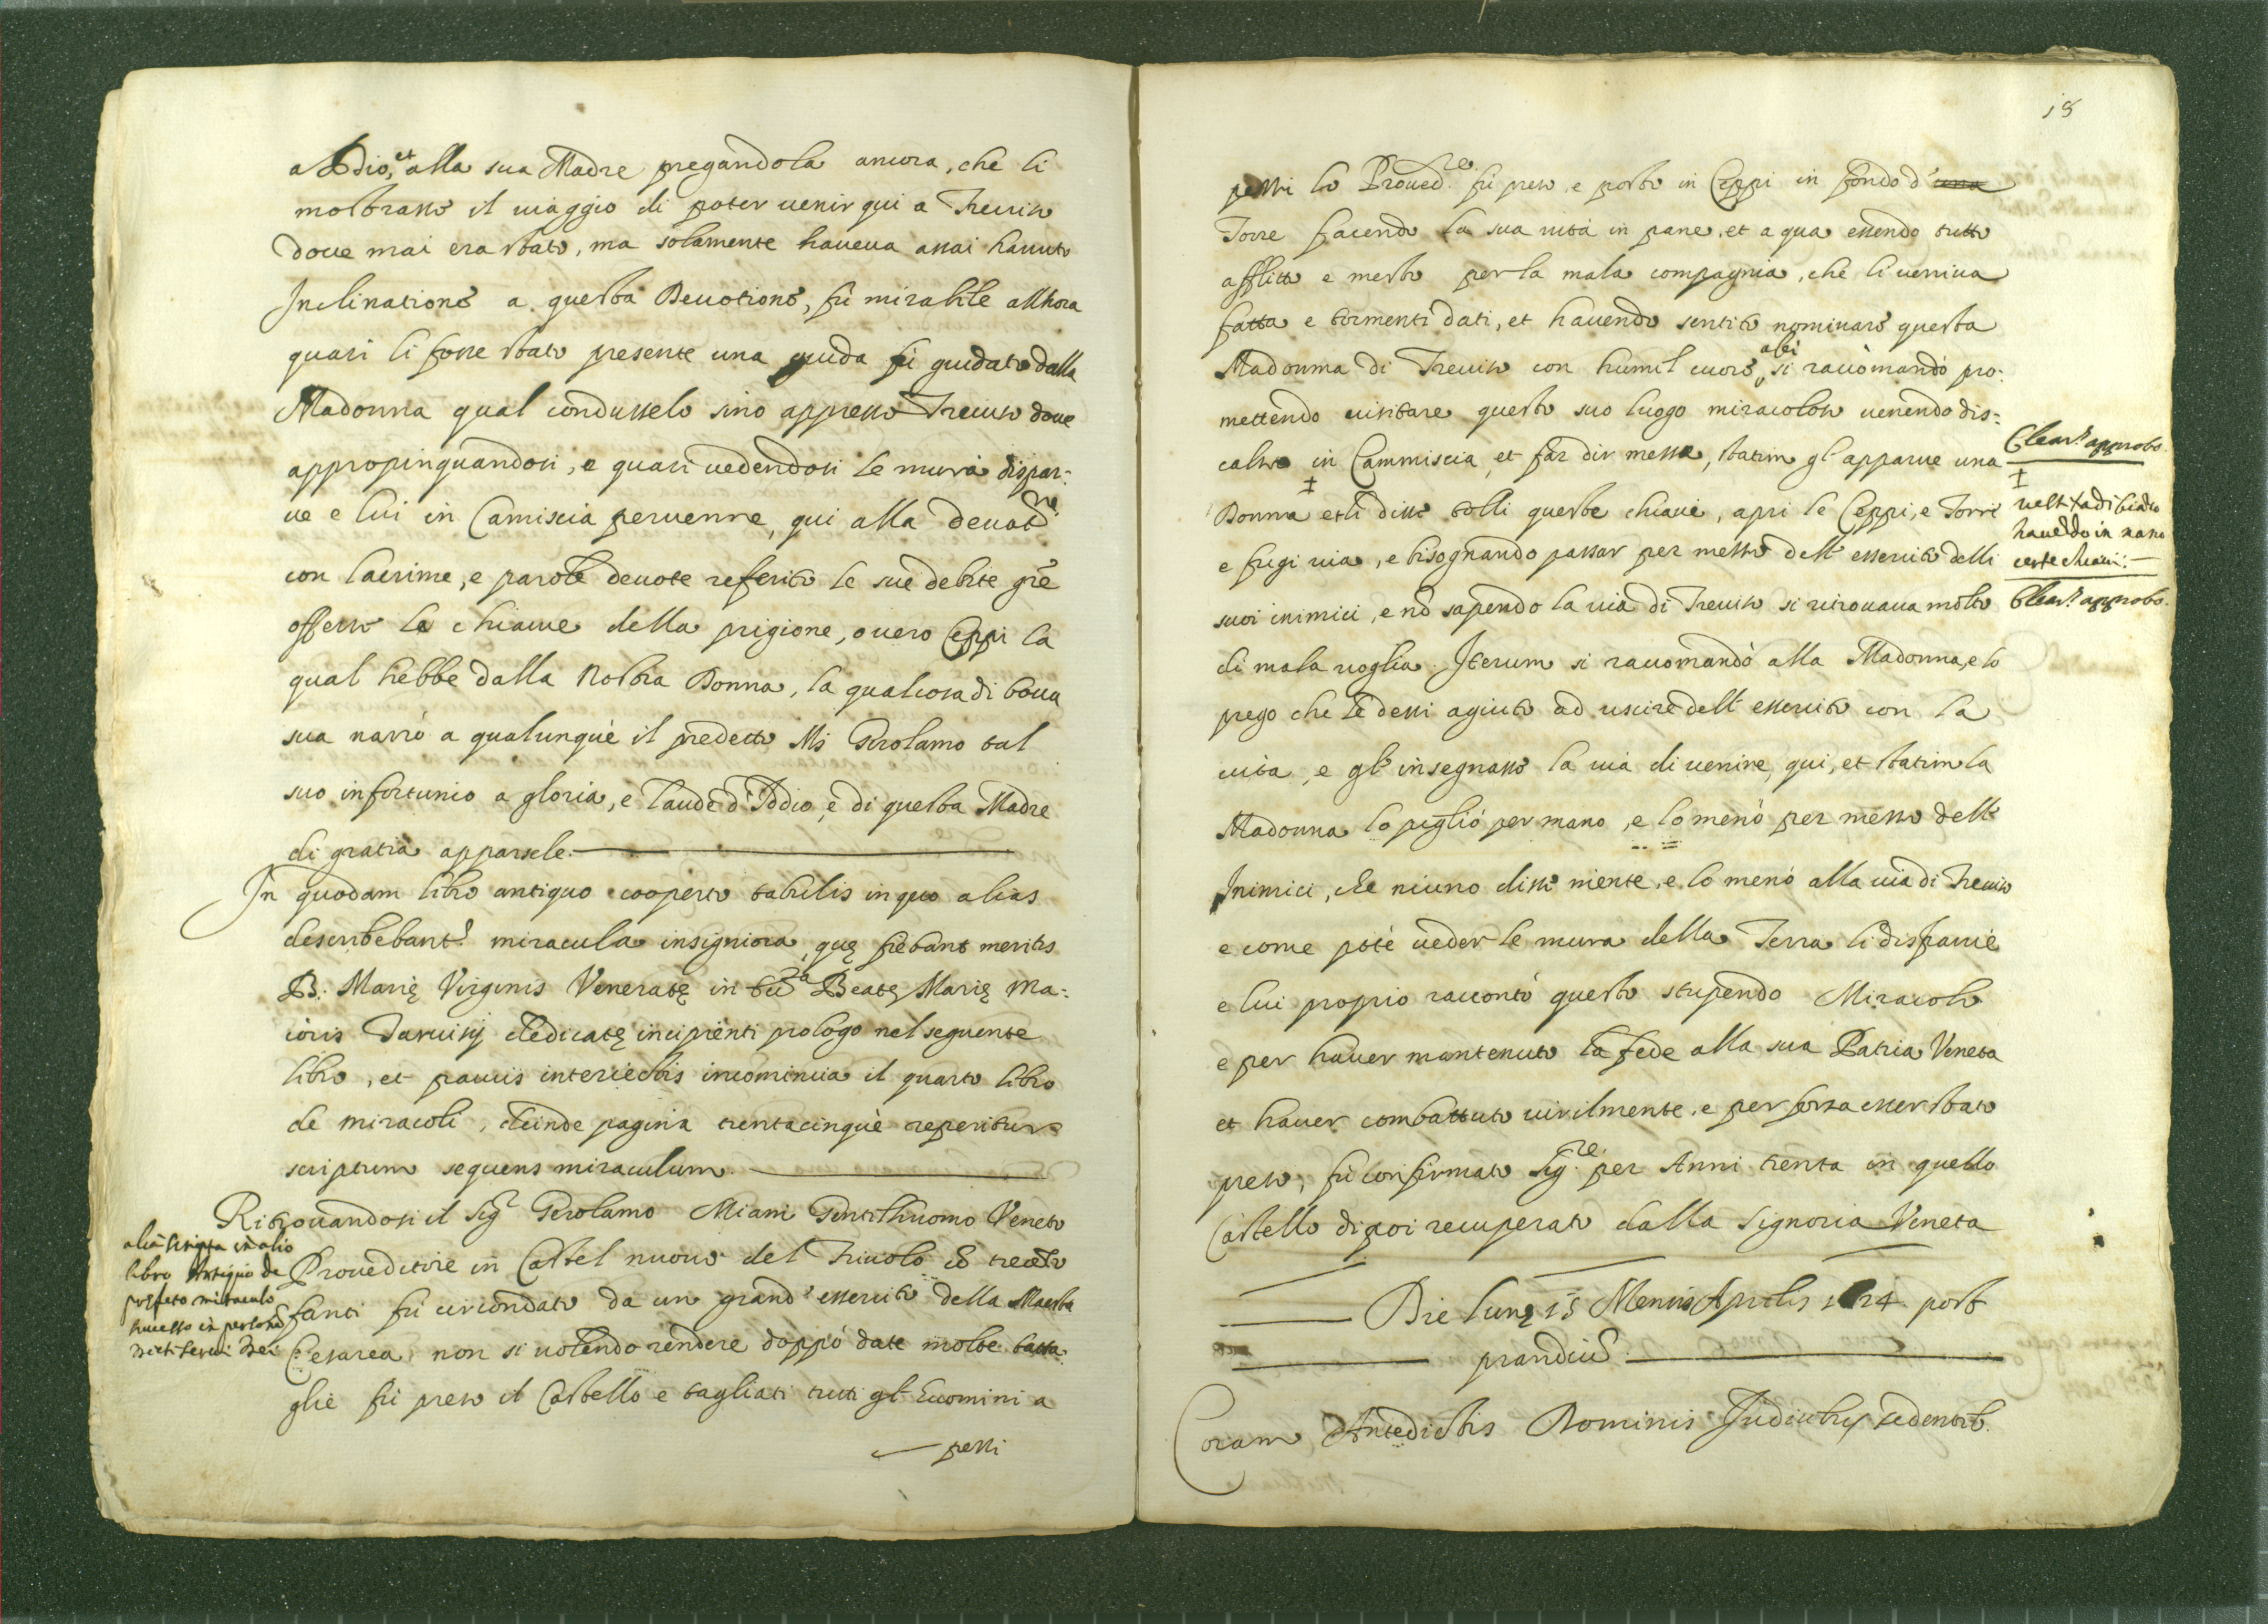 a Iddio, et alla sua Madre pregandola ancora, che li
mostrasse il uiaggio di poter uenir qui a Treuiso
doue mai era stato, ma solamente haueua assai hauuto
Inclinatione a questa Deuotione, fù mirabile allhora
quasi li fosse stato presente una guida fù guidato dalla
Madonna qual condusselo sino appresso Treuiso doue
appropinquandosi, e quasi uedendosi le mura dispar:
ue e lui in Camiscia peruenne, qui alla deuot.ne
con lacrime, e parole deuote referite le sue debite gr̃e
offerse le chiaue della prigione, ouero Ceppi la
qual hebbe dalla Nostra Donna, la qual cosa di boua
sua narrò a qualunque il predetto Ms Gerolamo tal
suo infortunio a gloria, e laude d'Iddio, e di questa Madre
di gratia apparsele.
In quodam libro antiquo cooperto tabulis in quo alias
describebant.r miracula insigniora, quę fiebant meritis
B. Marię Virginis Veneratę in Beatę Marię Ma:
ioris Taruisij dedicatę incipienti prologo nel seguente
libro, et paucis interiectis incomincia il quarto libro
de miracoli, deinde pagina trentacinque reperitur
scriptum sequens miraculum.
Ritrouandosi il Sig.r Gerolamo Miani Gentilhuomo Veneto
Proueditore in Castel nuouo del Friuolo cõ trecẽto
fanti fù circondato da un grand' essercito della Maestà
Cesarea, non si uolendo rendere doppò date molte batta:
glie fù preso il Castello e tagliati tutti gl'huomini a
pessi
alia scripta in alio
libro Antiquo de
prefato miraculo
successo in persona
dicti serui Dei
18
pessi lo Proued.re fù preso e posto in Ceppi in fondo d' una
Torre facendo la sua uita in pane, et aqua essendo tutto
afflitto e mesto per la mala compagnia, che li ueniua
fatta e tormenti dati, et hauendo sentito nominare questa
Madonna di Treuiso con humil cuore a lei si racõmandò pro:
mettendo uisitare questo suo luogo miracoloso uenendo dis:
calso in Cammiscia, et far dir messa, statim gl'apparue una
Donna et li disse tolli queste chiaue, apri le Ceppi, e Torre
e fugi uia, e bisognando passar per messo dell'essercito delli
suoi inimici, e nõ sapendo la uia di Treuiso si ritrouaua molto
di mala uoglia. Iterum si racomandò alla Madonna, e lo
prego che le dessi agiuto ad uscire dell'essercito con la
uita, e gl'insegnasse la uia di uenire, qui, et statim la
Madonna lo pigliò per mano, e lo menò per messo dell'
Inimici, che niuno disse niente, e lo menò alla uia di Treuiso
e come potè ueder le mura della Terra li disparue
e lui proprio raccontò questo stupendo Miracolo
e per hauer mantenuto la fede alla sua Patria Veneta
et hauer combattuto uirilmente, e per forza esser stato
preso, fù confirmato Sig.re per Anni trenta in quello
Castello di poi recuperato dalla Signoria Veneta
Die lunę 15 Mensis Aprilis 1624 post
prandiũ
Coram Antedictis Dominis Iudicibus sedentib.
Clear.s approbo
uestita di biãco
hauẽdo in mano
certe chiaui:
Clear.s approbo.